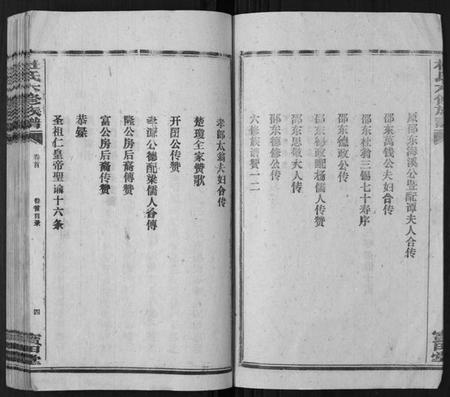 邵东海溪公暨配谭夫人合传
邵东万钱公夫妇合传
邵东杜翁三锡七十寿序
邵东德政公传
邵东德政配杨儒人传赞
邵东思敬大人传
邵东德修公传
六修族谱赞一二
孝郎太翁夫妇合传
楚琼全家赞歌
开图公传赞
孝源公德配梁儒人合傳
隆公房后裔傳赞
富公房后裔传赞
恭录
圣祖仁皇帝聖谕十六条
杜氏六修族譜
卷首
卷首目录
四